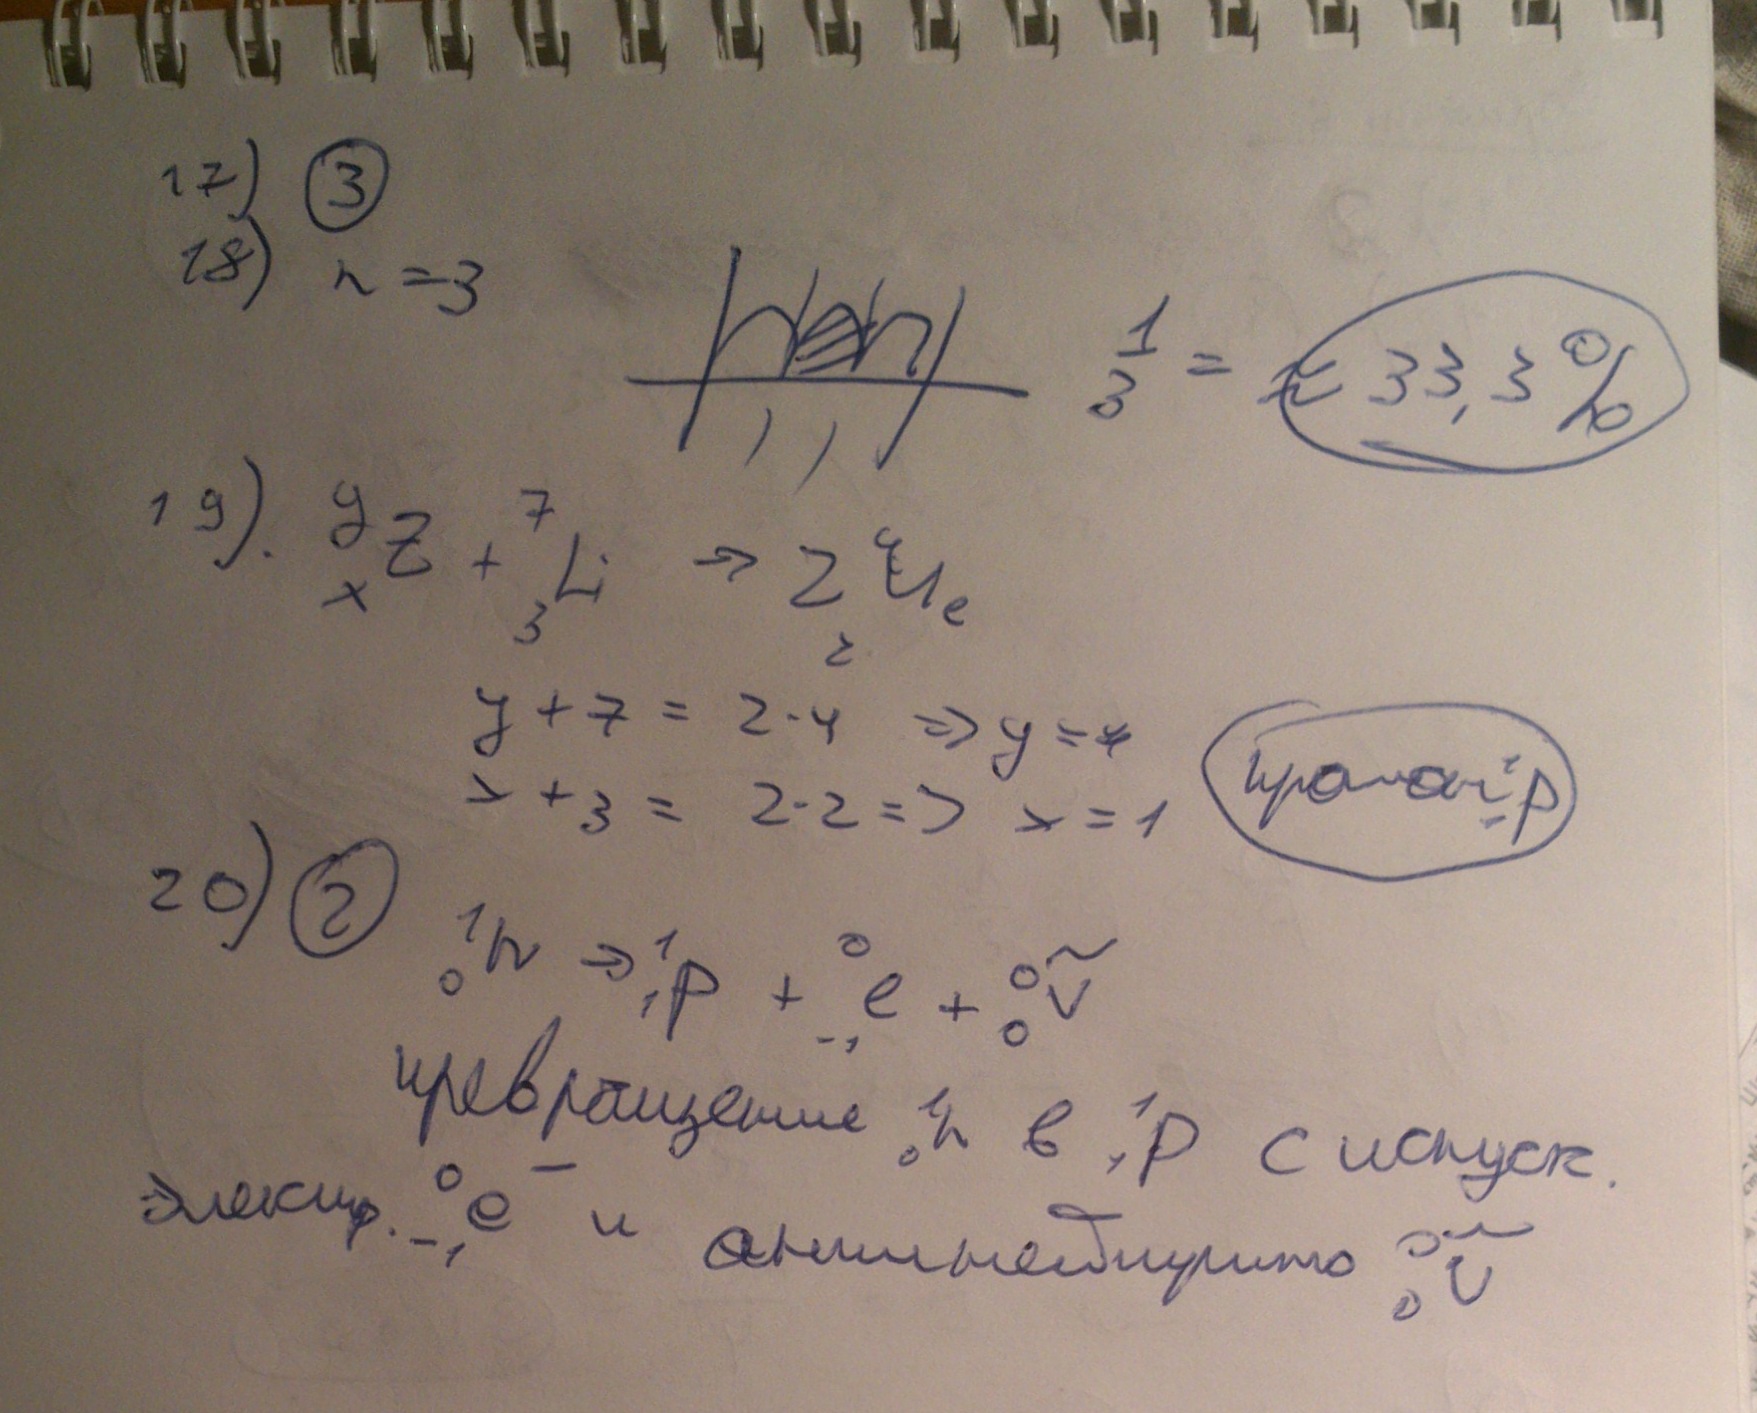 17) 3
18) n = 3
1/3 = ≈ 33,3 %
19). ʸₓZ + ⁷₃Li → 2 ⁴₂He
y + 7 = 2·4 => y =
x + 3 = 2·2 => x = 1
протон ¹₁p
20) 2
¹₀n → ¹₁p + ⁰₋₁e + ⁰₀ṽ
превращение ¹₀n в ¹₁p с испуск.
электр. ⁰₋₁e⁻ и ⁰₀ṽ